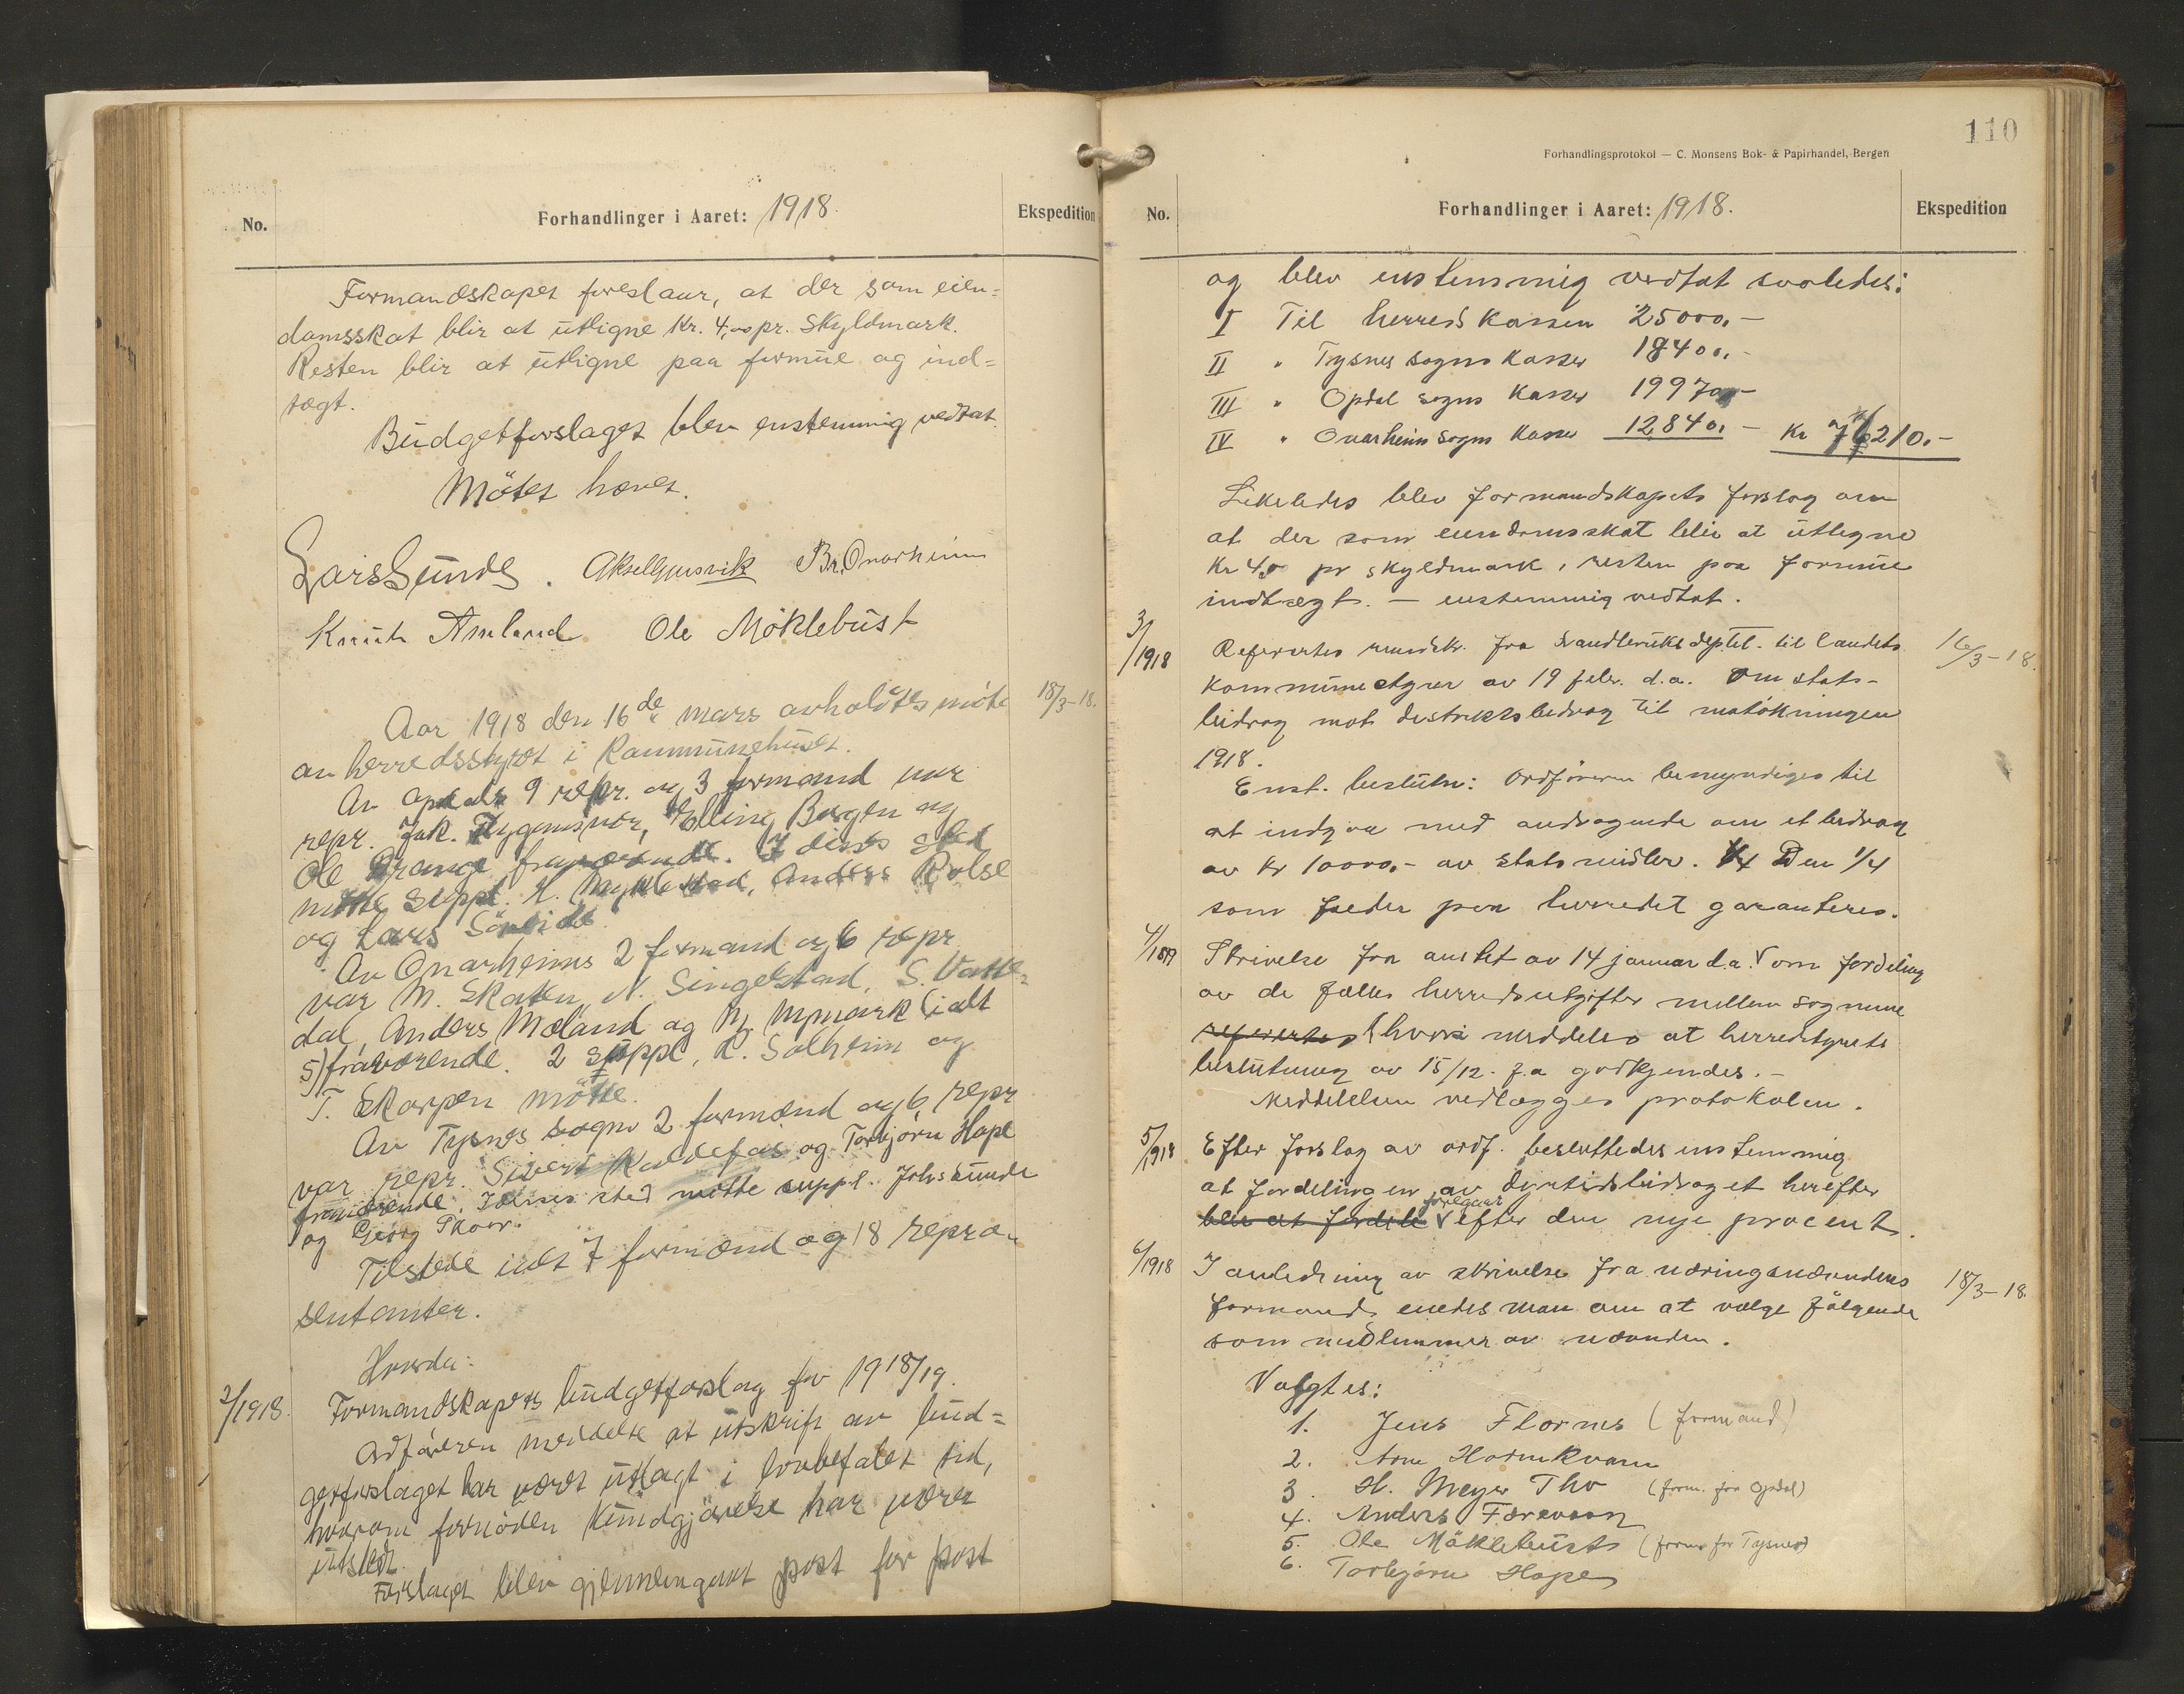 No.
Forhandlinger i Aaret: 1918.
Ekspedition
Formandskapet foreslaar, at der som eien=
damsskat blir at utligne Kr. 4,00 pr. Skyldmark.
Resten blir at utligne paa formue og ind=
tægt.
Budgetforslaget blev enstemmig vedtat.
Mötet hævet.
Lars Sunde. Aksel Gjøsvik Br. Onarheim
Knut Amland Ole Möklebust
Aar 1918 den 16de mars avholdtes möte
18/3-18.
av herredsstyret i Kommunehuset.
Av Opdals 9 repr. og 3 formænd var
repr. Jak. Flygansvær, Elling Bergen og
Ole Drange fraværende. I deres sted
mötte suppl. H. Myklestad, Anders Rolse
og Lars Söreide.
Av Onarheims 2 formænd og 6 repr
var M. Skaten, N. Singelstad, S. Vatte=
dal, Anders Mæland og M. Nymark (ialt
5) fraværende. 2 suppl, K. Solheim og
T. Skarpen mötte.
Av Tysnes sogns 2 formænd og 6 repr
var repr. Sivert Kaldefos og Torbjörn Hope
fraværende. I deres sted mötte suppl. Johs Sunde
og Georg
Tilstede ialt 7 formænd og 18 repræ
sentanter.
Hvorda:
2/1918.
Formandskapets budgetforslag for 1918/19.
Ordföreren meddelte at utskrift av bud=
getforslaget har været utlagt i lovbefalet tid,
hvorom fornöden kundgjörelse har været
utstedt.
Forslaget blev gjennemgaat post for post
110
Forhandlingsprotokol — C. Monsens Bok- & Papirhandel, Bergen
No.
Forhandlinger i Aaret: 1918.
Ekspedition
og blev enstemmig vedtat saaledes:
I Til herreds Kassen 25000,-
II " Tysnes sogns Kasser 18400,-
III " Opdal sogns Kasser 19970,-
IV " Onarheim sogns Kasser 12840,- Kr 76210.-
Likeledes blev formandskapets forslag om
at der som eiendomsskat blir at utligne
Kr 4,00 pr skyldmark, resten paa formue
indtægt. — enstemmig vedtat.
3/1918
Refertertes rundskr. fra Landbruksdeptet. til landets
16/3-18.
kommunestyrer av 19 febr. d.a. om stats-
bidrag mot distriktsbidrag til matökningen
1918.
Enst. beslutn: Ordföreren bemyndiges til
at indgaa med andragende om et bidrag
av Kr 10000,- av statsmidler. Den 1/4
som falder paa herredet garanteres.
4/1918
Skrivelse fra amtet av 14 januar d.a. om fordeling
av de fælles herredsutgifter mellem sognene
refertertes hvori meddeles at herredstyrets
beslutning av 15/12. f.a godkjendes.-
Meddelelsen vedlægges protokolen.
5/1918
Efter forslag av ordf. besluttedes enstemmig
at fordelingen av dyrtidsbidraget herefter
foregaar
blir at fordele efter den nye procent.
6/1918
I anledning av skrivelse fra næringsnævndens
18/3-18.
formand enedes man om at vælge fölgende
som medlemmer av nævnden.
Valgtes:
1. Jens Flornes (formand)
2. Arne Hornkvam
3. H. Meyer Tho (form. for Opdal)
4. Anders Færevaag
5. Ole Möklebust (form for Tysnes)
6. Torbjörn Hope